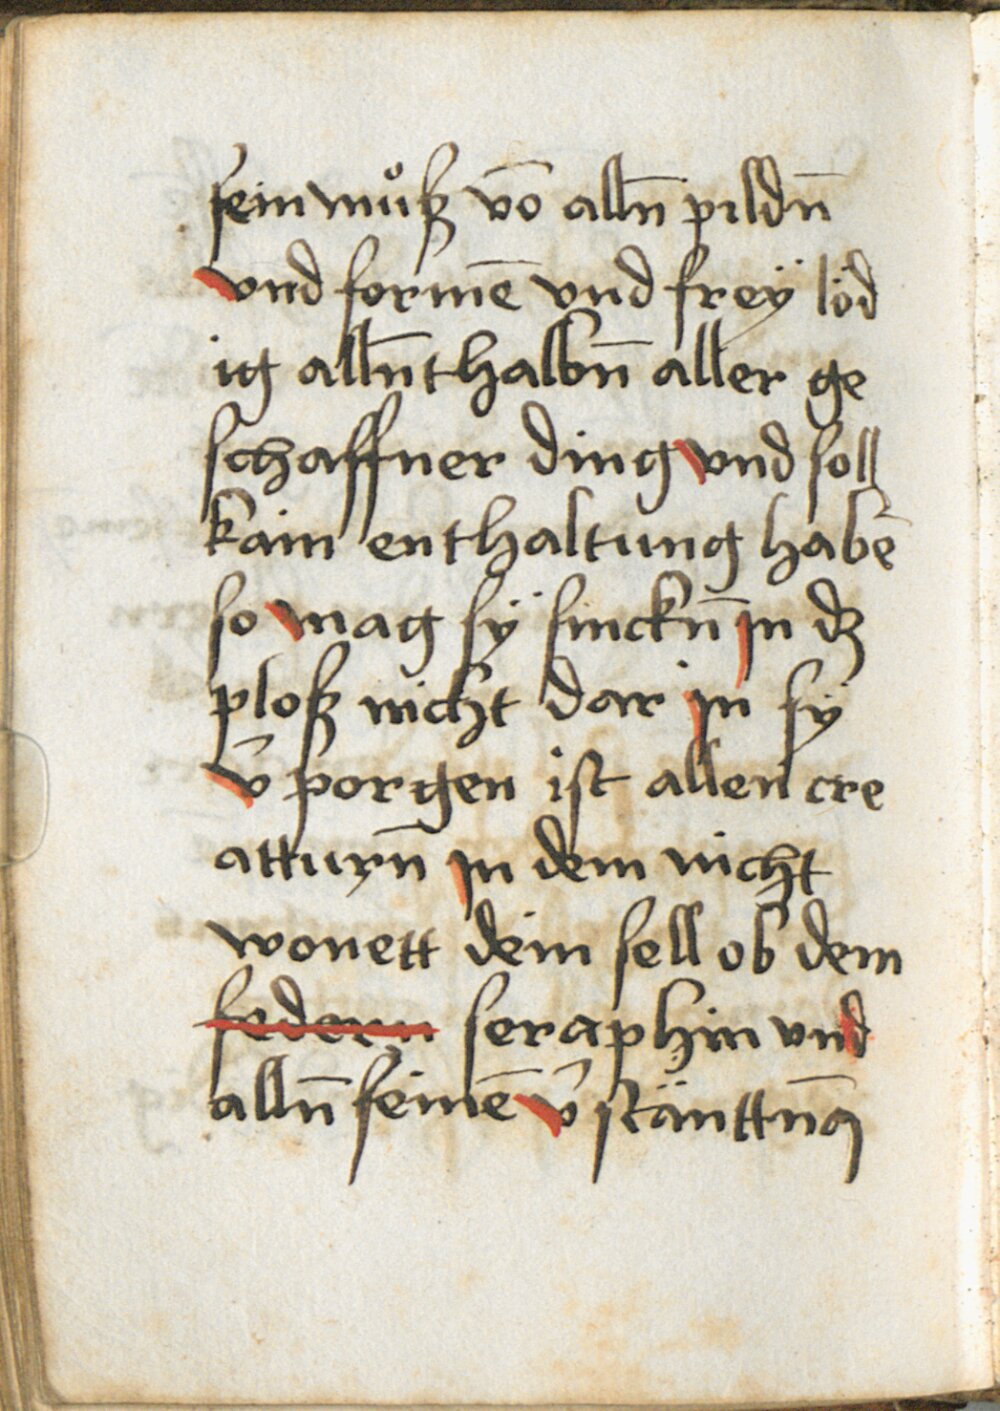 sein můß vō alln̄ pildn̄
vnd formē vnd freÿ löd
ig alln̄thalbn̄ aller ge
schaffner ding vnd soll
kain enthaltung habē
so mag sÿ sinckn̄ jn dz
ploß nicht dar jn sÿ
v̄porgen ist allen cre
atturn̄ jn dem nicht
wonett dein sell ob dem
federn seraphin vnd
alln̄ seinē v̄stänttnꝯ